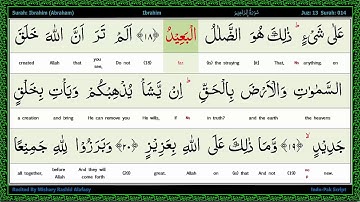 Surah: Ibrahim (Abraham) Ibrahim سُوْرَةُ اِبْرَاهِيْم Juz: 13 Surah: 014
عَلٰى شَىْءٍ ؕ ذٰلِكَ هُوَ الضَّلٰلُ الْبَعِيْدُ ﴿۱۸﴾ اَلَمْ تَرَ اَنَّ اللّٰهَ خَلَقَ
created Allah that you see, Do not (18) far (is) the straying [it] That, (is) anything. on
السَّمٰوٰتِ وَالْاَرْضَ بِالْحَقِّ ؕ اِنْ يَّشَاْ يُذْهِبْكُمْ وَيَاْتِ بِخَلْقٍ
a creation and bring He can remove you He wills, If in truth? and the earth the heavens
جَدِيْدٍ ۙ ﴿۱۹﴾ وَّمَا ذٰلِكَ عَلَى اللّٰهِ بِعَزِيْزٍ ﴿۲۰﴾ وَبَرَزُوْا لِلّٰهِ جَمِيْعًا
all together, before Allah And they will come forth (20) great. Allah on (is) that And not (19) new.
Recited By Mishary Rashid Alafasy Indo-Pak Script